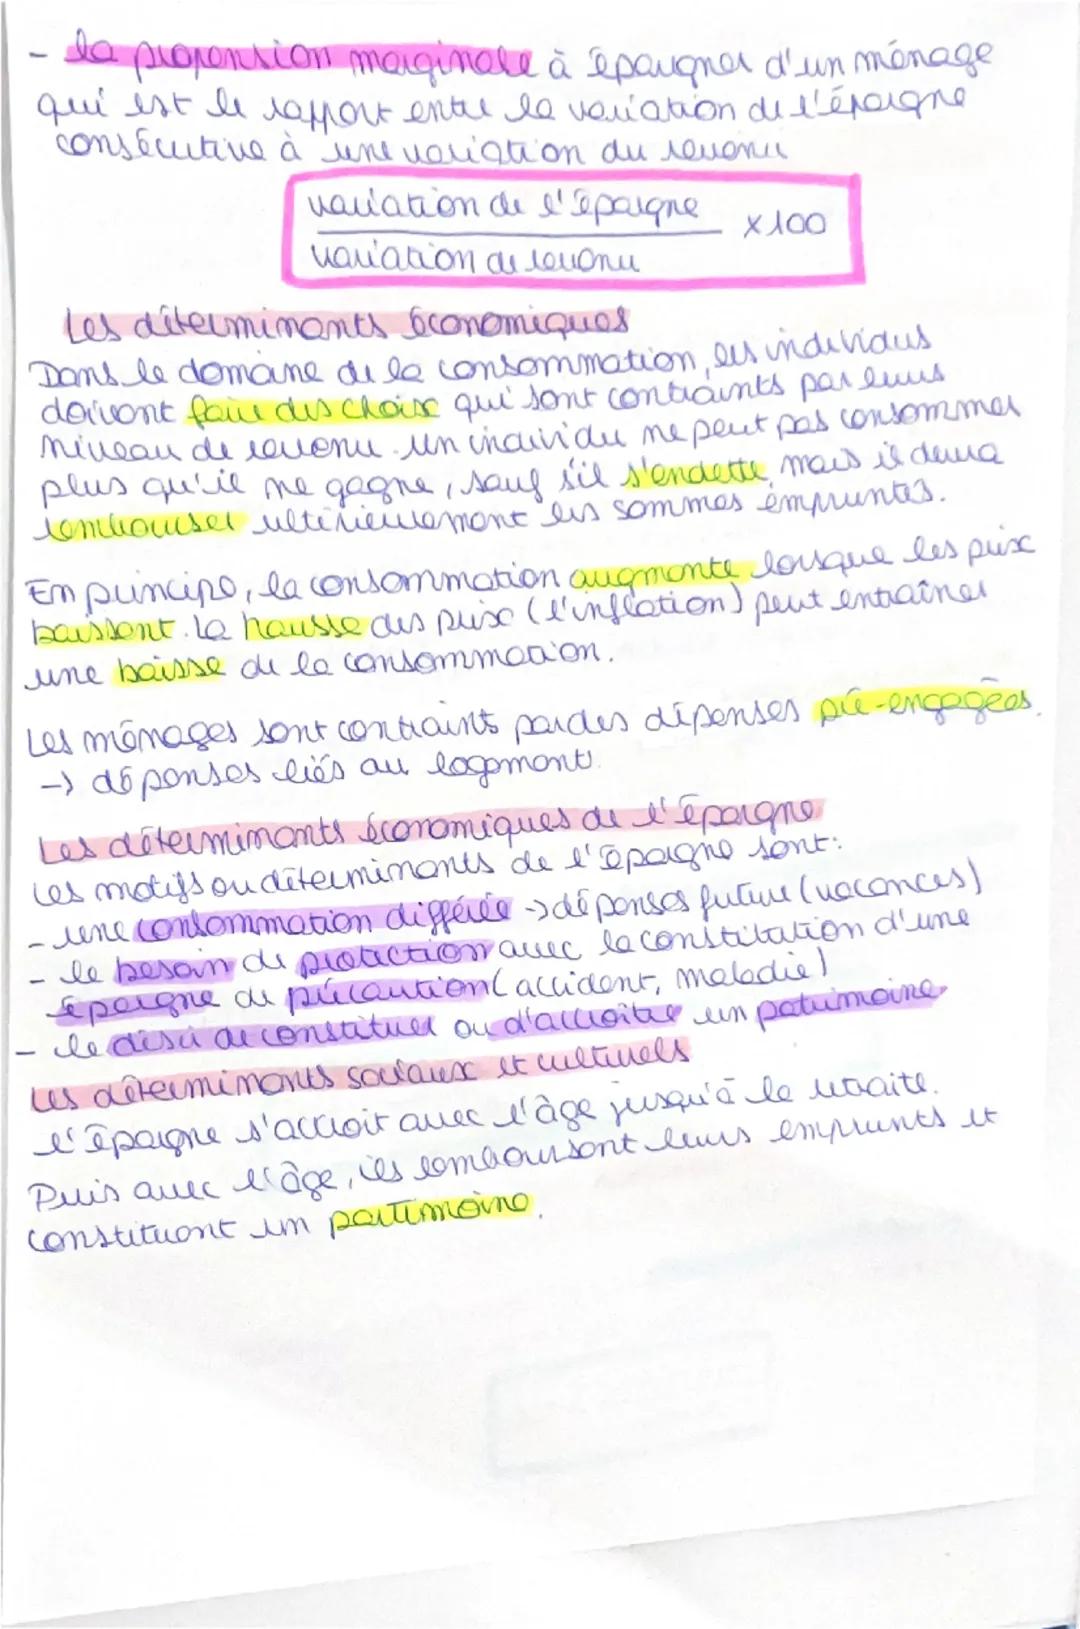 - la propension marginale à épargner d'un ménage
qui est le rapport entre la variation de l'épargne
consécutive à une variation du revenu
variation de l'épargne
x 100
variation de revenu
Les déterminants économiques
Dans le domaine de la consommation, les individus
doivent faire des choix qui sont contraints par leurs
niveau de revenu. Un individu ne peut pas consommer
plus qu'il ne gagne, sauf s'il s'endette, mais il devra
rembourser ultérieurement les sommes empruntés.
En principe, la consommation augmente lorsque les prix
baissent. La hausse des prix (l'inflation) peut entraîner
une baisse de la consommation.
Les ménages sont contraints par des dépenses pré-engagées.
-> dépenses liés au logement.
Les déterminants économiques de l'épargne
Les motifs ou déterminants de l'épargne sont:
- une consommation différée -> dépenses future (vacances)
- le besoin de protection avec la constitution d'une
épargne de précaution (accident, maladie)
- le désir de constituer ou d'accroître un patrimoine.
Les déterminants sociaux et culturels
L'épargne s'accroit avec l'âge jusqu'à la retraite.
Puis avec l'âge, ils remboursent leurs emprunts et
constituent un patrimoine.